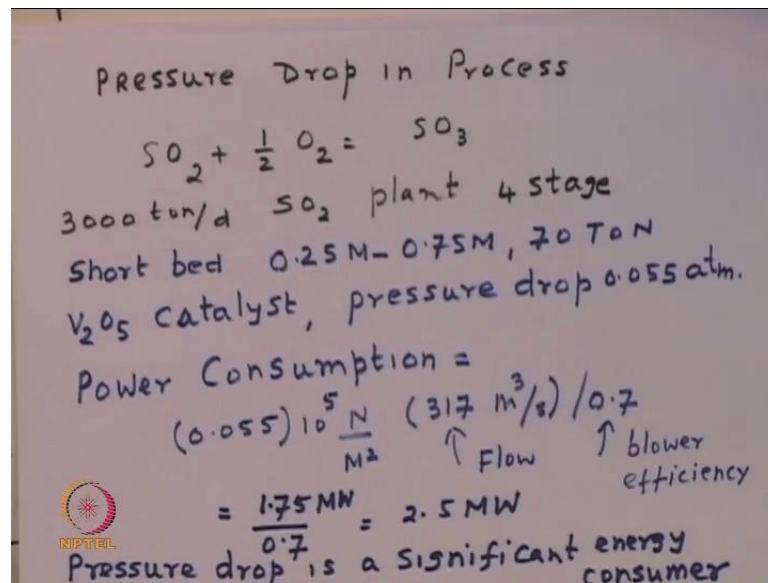 Pressure Drop in Process
SO2 + 1/2 O2 = SO3
3000 ton/d SO2 plant 4 stage
Short bed 0.25M-0.75M, 70 TON
V2O5 Catalyst, pressure drop 0.055 atm.
Power Consumption =
(0.055) 10^5 N/M² (317 m³/s) /0.7
↑ Flow ↑ blower efficiency
= 1.75 MW/0.7 = 2.5 MW
Pressure drop is a significant energy consumer
NPTEL